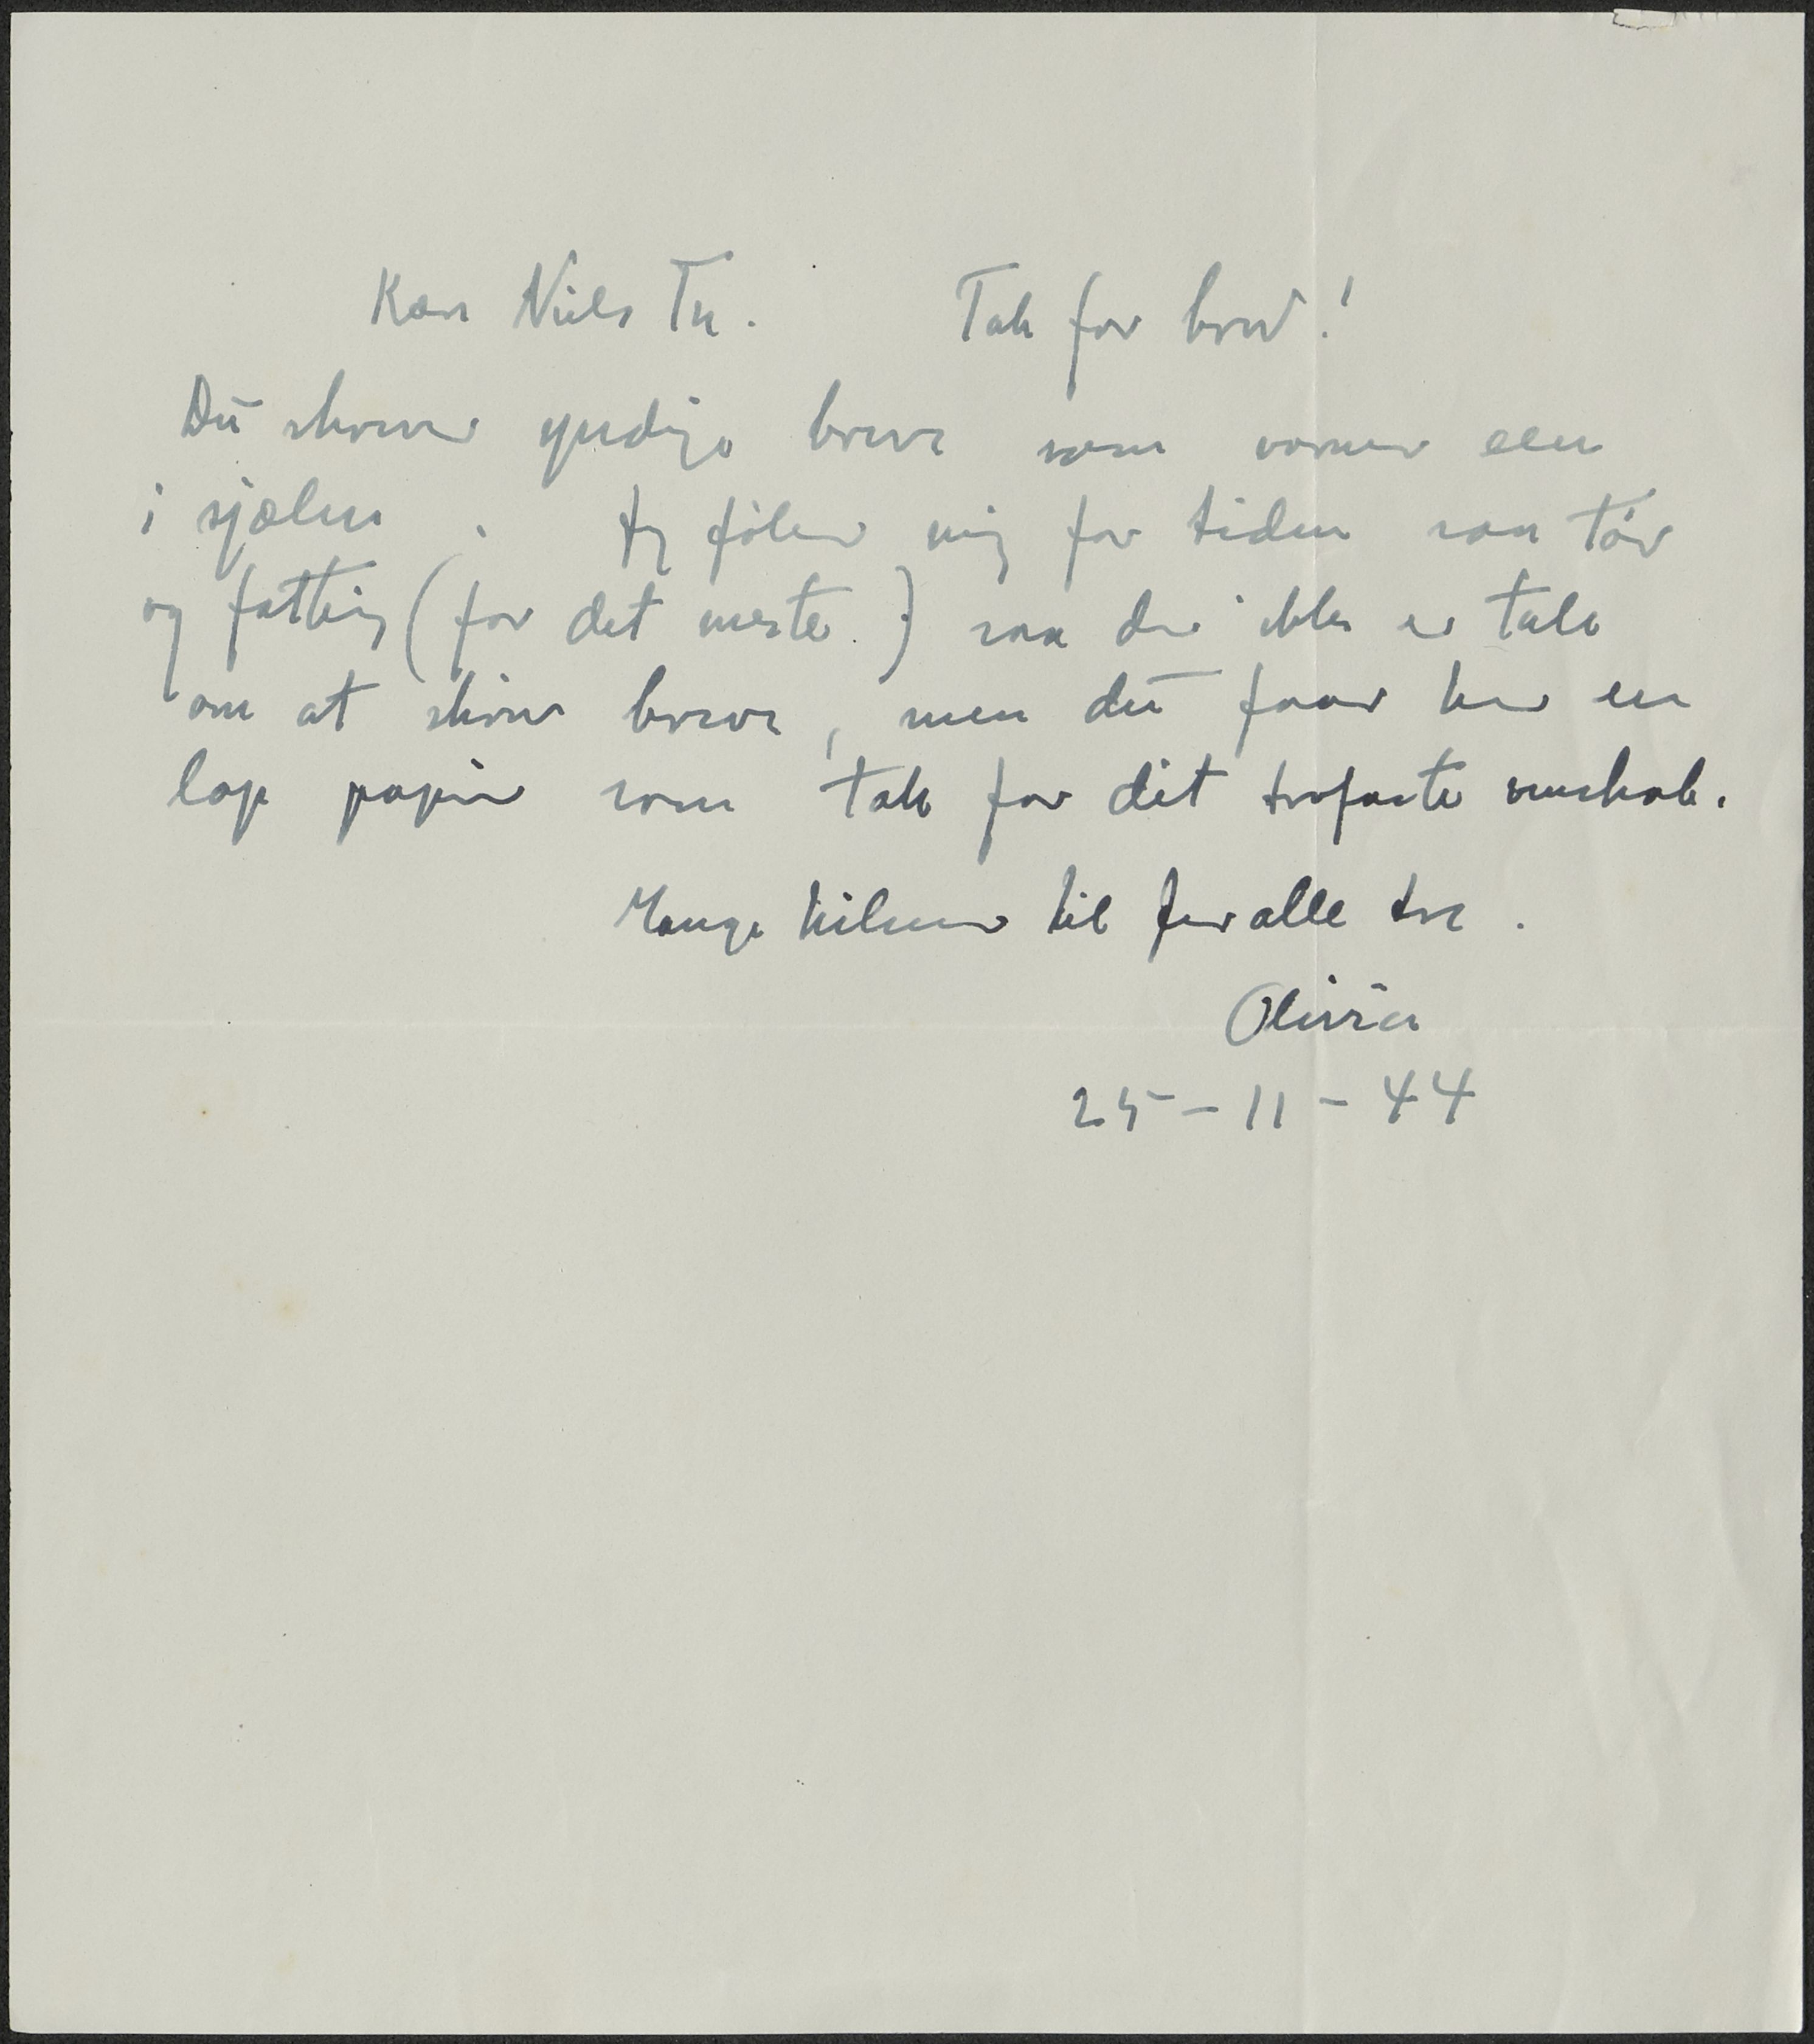 Kære Niels Th. Tak for brev!
Du skriver yndige breve som varmer een
i sjælen. Jeg føler mig for tiden saa tör
og fattig (for det meste.) saa der ikke er tale
om at skrive breve, men du faar her en
lap papir som tak for dit trofaste venskab.
Mange hilsner til jer alle tre.
Olivia
25-11-44